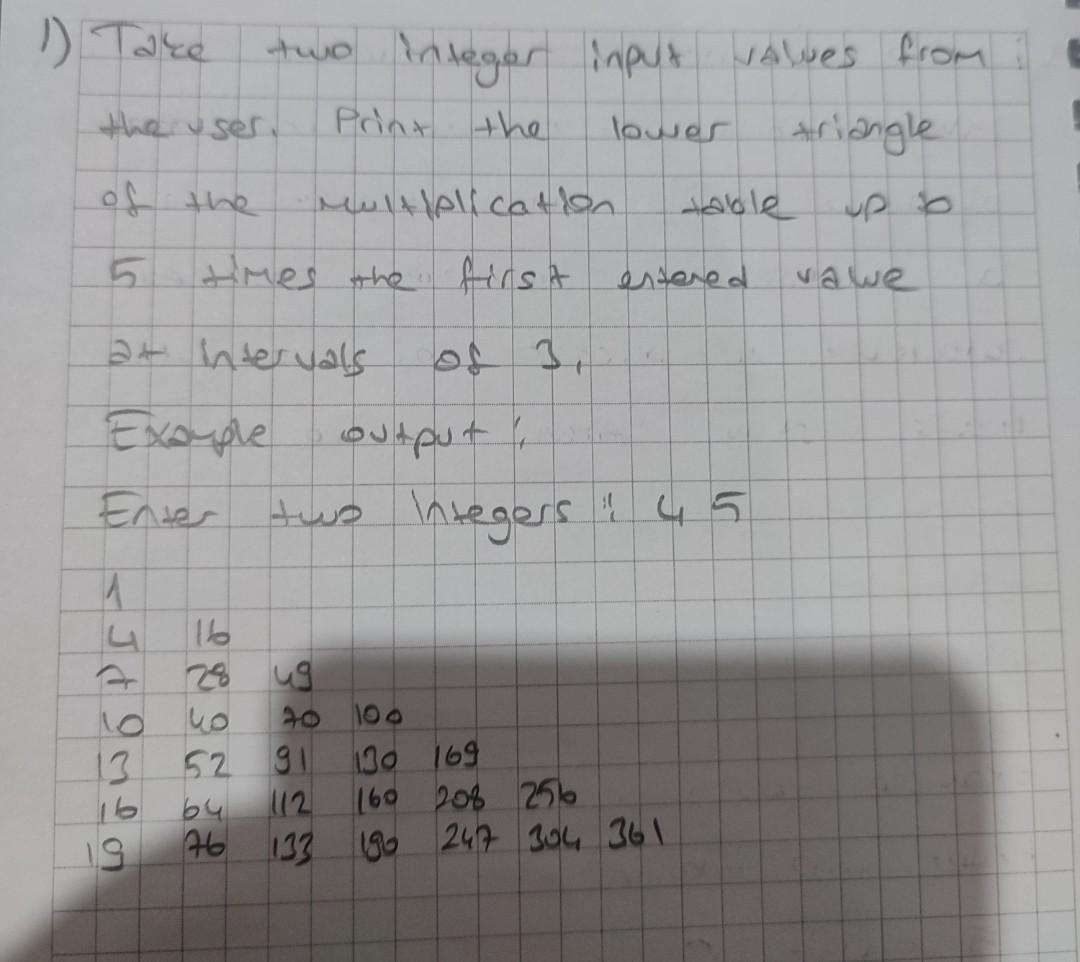 1) Take two integer input values from
the user. Print the lower triangle
of the multiplication table up to
5 times the first entered value
at intervals of 3.
Example output :
Enter two integers : 4 5
1
4 16
7 28 49
10 40 70 100
13 52 91 130 169
16 64 112 160 208 256
19 76 133 190 247 304 361